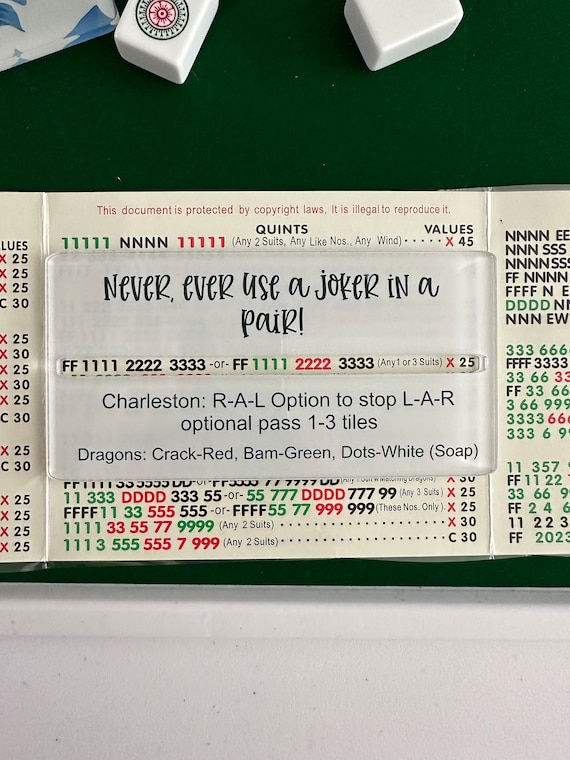 This document is protected by copyright laws, It is illegal to reproduce it.
QUINTS VALUES
11111 NNNN 11111 (Any 2 Suits, Any Like Nos., Any Wind) ····· X 45
Never, ever use a joker in a
pair!
FF 1111 2222 3333 -or- FF 1111 2222 3333 (Any 1 or 3 Suits) X 25
Charleston: R-A-L Option to stop L-A-R
optional pass 1-3 tiles
Dragons: Crack-Red, Bam-Green, Dots-White (Soap)
11 333 DDDD 333 55 -or- 55 777 DDDD 777 99 (Any 3 Suits) X 25
FFFF 11 33 555 555 -or- FFFF 55 77 999 999 (These Nos. Only). X 25
1111 33 55 77 9999 (Any 2 Suits) X 30
111 3 555 555 7 999 (Any 2 Suits) C 30
LUES
X 25
X 25
X 25
C 30
X 25
X 30
X 25
X 25
C 30
X 25
X 25
X 25
X 25
X 25
NNNN EE
NNN SSS
NNNN SSS
FF NNNN
FFFF N E
DDDD NN
NNN EW
333 666
FFFF 3333
33 66 33
FF 33 66
3 66 999
3333 666
333 6 99
11 357 9
FF 11 22
33 66 99
FF 2 4 6
11 22 3
FF 2023